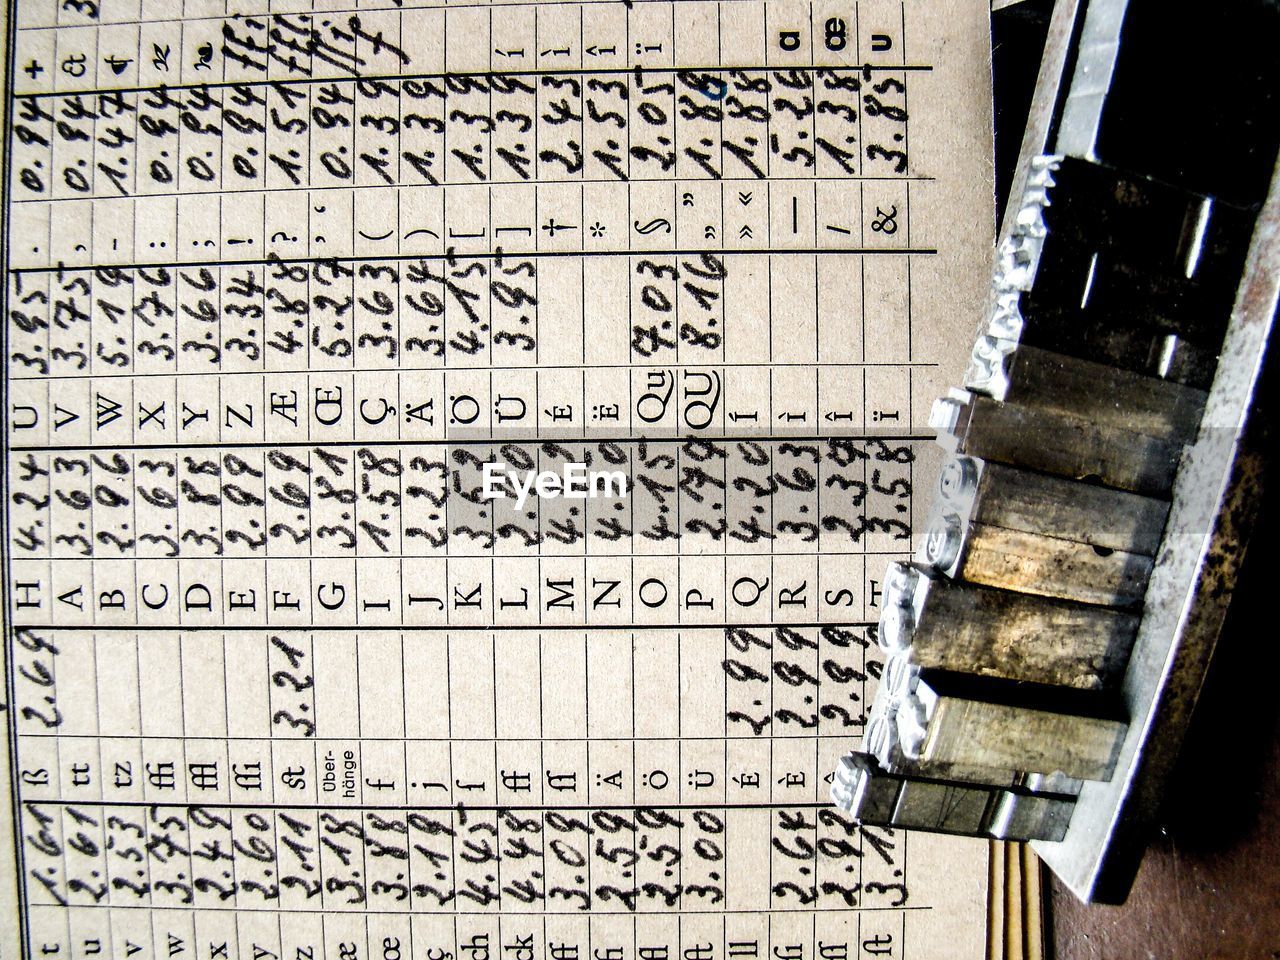 t 1.61 ß 2.69 H 4.24 U 3.95 . 0.94 +
u 2.61 tt A 3.63 V 3.75 , 0.94 ct
v 2.53 tz B 2.96 W 5.19 - 1.47
w 3.75 ffi C 3.63 X 3.76 : 0.94
x 2.49 ffl D 3.85 Y 3.66 ; 0.94
y 2.60 ſſi E 2.99 Z 3.34 ! 0.94 ffi
z 2.11 ſt 3.21 F 2.69 Æ 4.88 ? 1.51 ffl
æ 3.18 Über-
hänge G 3.81 Œ 5.27 ’ ‘ 0.94
œ 3.88 f I 1.58 Ç 3.63 ( 1.39
ç 2.19 j J 2.23 Ä 3.64 ) 1.39
ch 4.45 ſ K 3.52 Ö 4.15 [ 1.39
ck 4.48 ff L Ü 3.95 ] 1.39 í
ff 3.09 ſſ M É † 2.43 ì
fi 2.59 Ä N Ë * 1.53 î
fl 2.59 Ö O 4.15 Qu 7.03 § 2.05 ï
ft 3.00 Ü P 2.79 QU 8.16 „ ” 1.88
ll É 2.99 Q 4.20 Í » « 1.88
ſi 2.64 È 2.99 R 3.63 Ì — 5.26 a
ſſ 2.92 Ê 2.99 S 2.39 Î / 1.38 æ
ſt T 3.58 Ï & 3.85 u
EyeEm